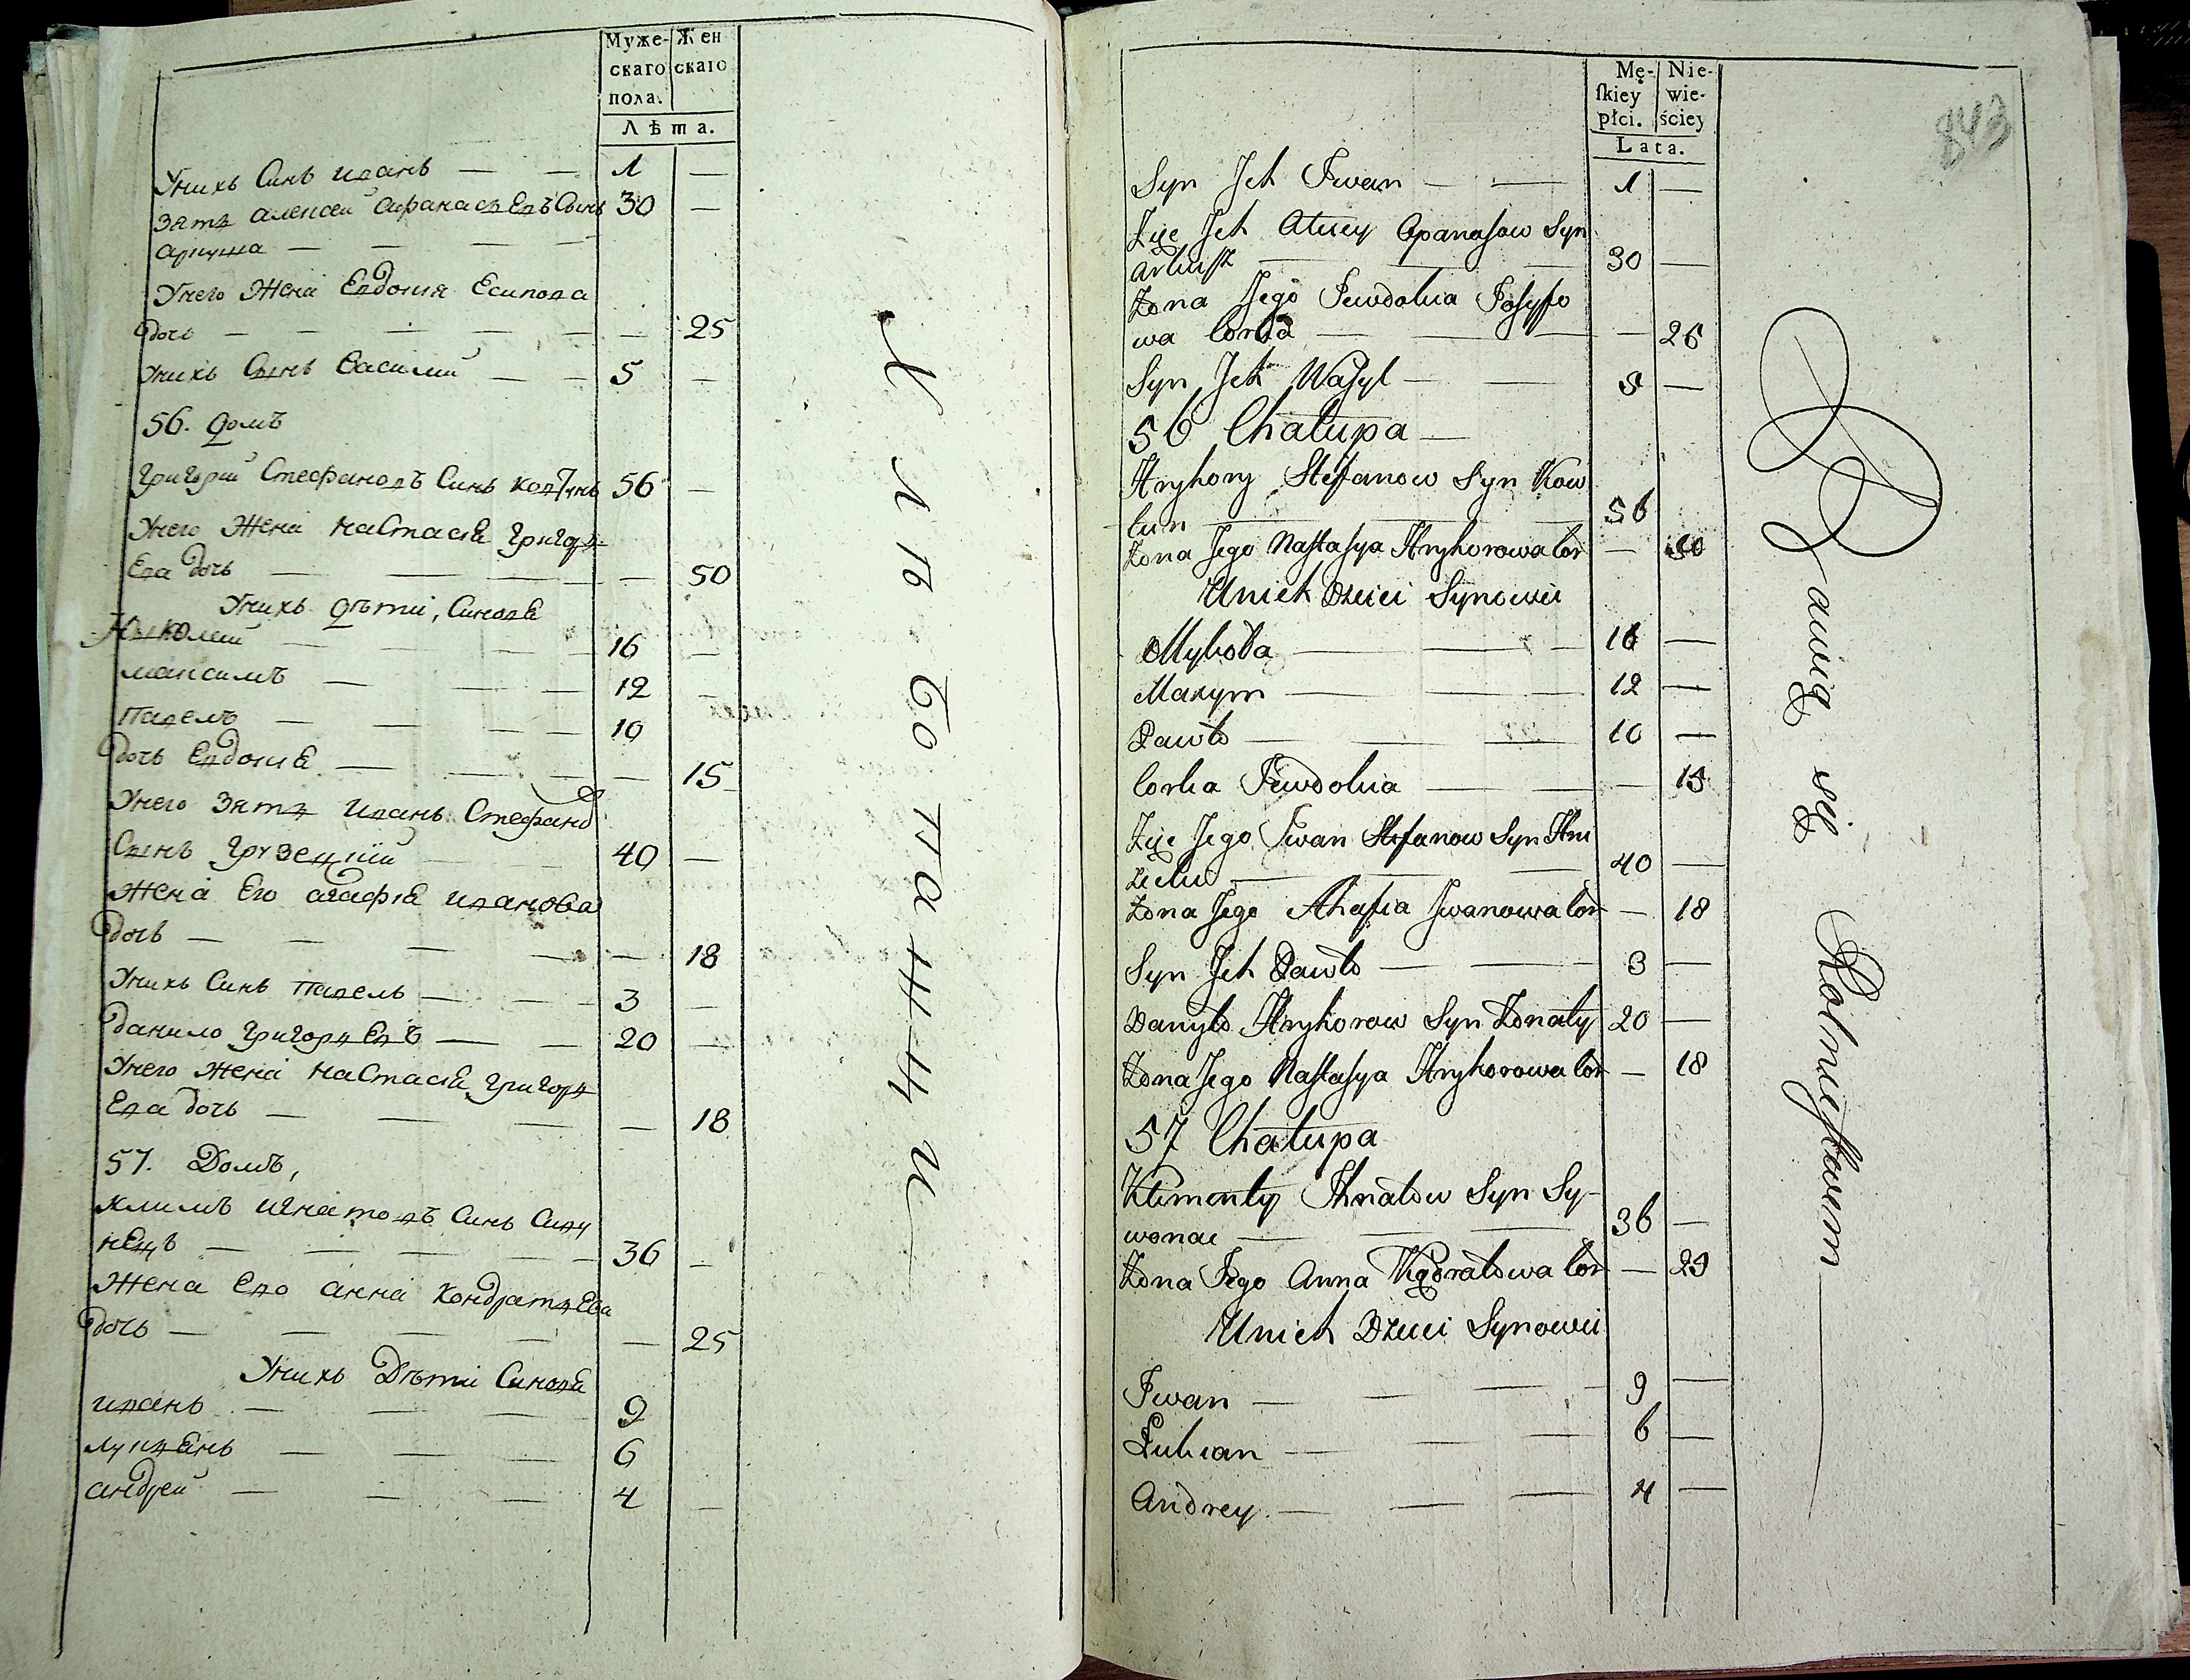 Муже-
скаго
пола.
Жен
скаго
Лѣта.
Унихъ Синъ иванъ — — 1 —
Зятъ алексей Афанасьевъ Сынъ 30 —
— — — —
Унего Жена Евдокия Есипова
дочь — — — — — 25
Унихъ Сынъ Василий — — 5 —
56. домъ
Григорий Стефановъ Синъ Ковтунъ 56 —
Унего Жена Настасия Григорь
Ева дочь — — — — 50
Унихъ дѣти, Синове
Николай — — — 16 —
максимъ — — — 12 —
Павелъ — — — 10
дочь Евдокия — — — — 15
Унего Зять Иванъ Стефанов
Сынъ Грузецкий — 40 —
Жена Его агафия иванова
дочь — — — — — 18
Унихъ Синъ Павелъ — — — 3 —
данило Григорьевъ — — 20 —
Унего жена Настасия Григорь
Ева дочь — — — — 18
57. Домъ,
климъ игнатовъ Синъ Сиву
нецъ — — — — 36 —
Жена Его анна Кондратьева
дочь — — — — — 25
Унихъ Дѣти Синове
иванъ — — — 9
лукьянъ — — — 6
андрей — — — 4 —
Хлѣбопашци
Mę-
ſkiey
płci.
Nie-
wie-
ściey
Lata.
843
Syn Jch Iwan — — 1 —
Zięć Jch Alexey Apanasow Syn
— — — 30 —
Żona Jego Jewdokia Josyfo
wa Corka — — — 25
Syn Jch Wasyl — — 5 —
56 Chałupa —
Hryhory Stefanow Syn Kow
tun — — — 56
Żona Jego Nastasya Hryhorowa Cor — 50
Unich Dzieci Synowie
Mykoła — — — 16 —
Maxym — — — 12 —
Pawło — — — 10 —
Corka Jewdokia — — — 15
Zięć Jego Iwan Stefanow Syn Hru
zecki — — — 40 —
Żona Jego Ahafia Jwanowa Cor — 18
Syn Jch Pawło — — 3 —
Danyło Hryhorow Syn Żonaty 20 —
Żona Jego Nastasya Hryhorowa Cor — 18
57 Chałupa
Klimenty Ihnatow Syn Sy-
woniec — — — 36 —
Żona Jego Anna Kądratowa Cor — 29
Unich Dzieci Synowie
Iwan — — — 9 —
Łukian — — — 6 —
Andrey — — — 4 —
Bawią się Rolnictwem —